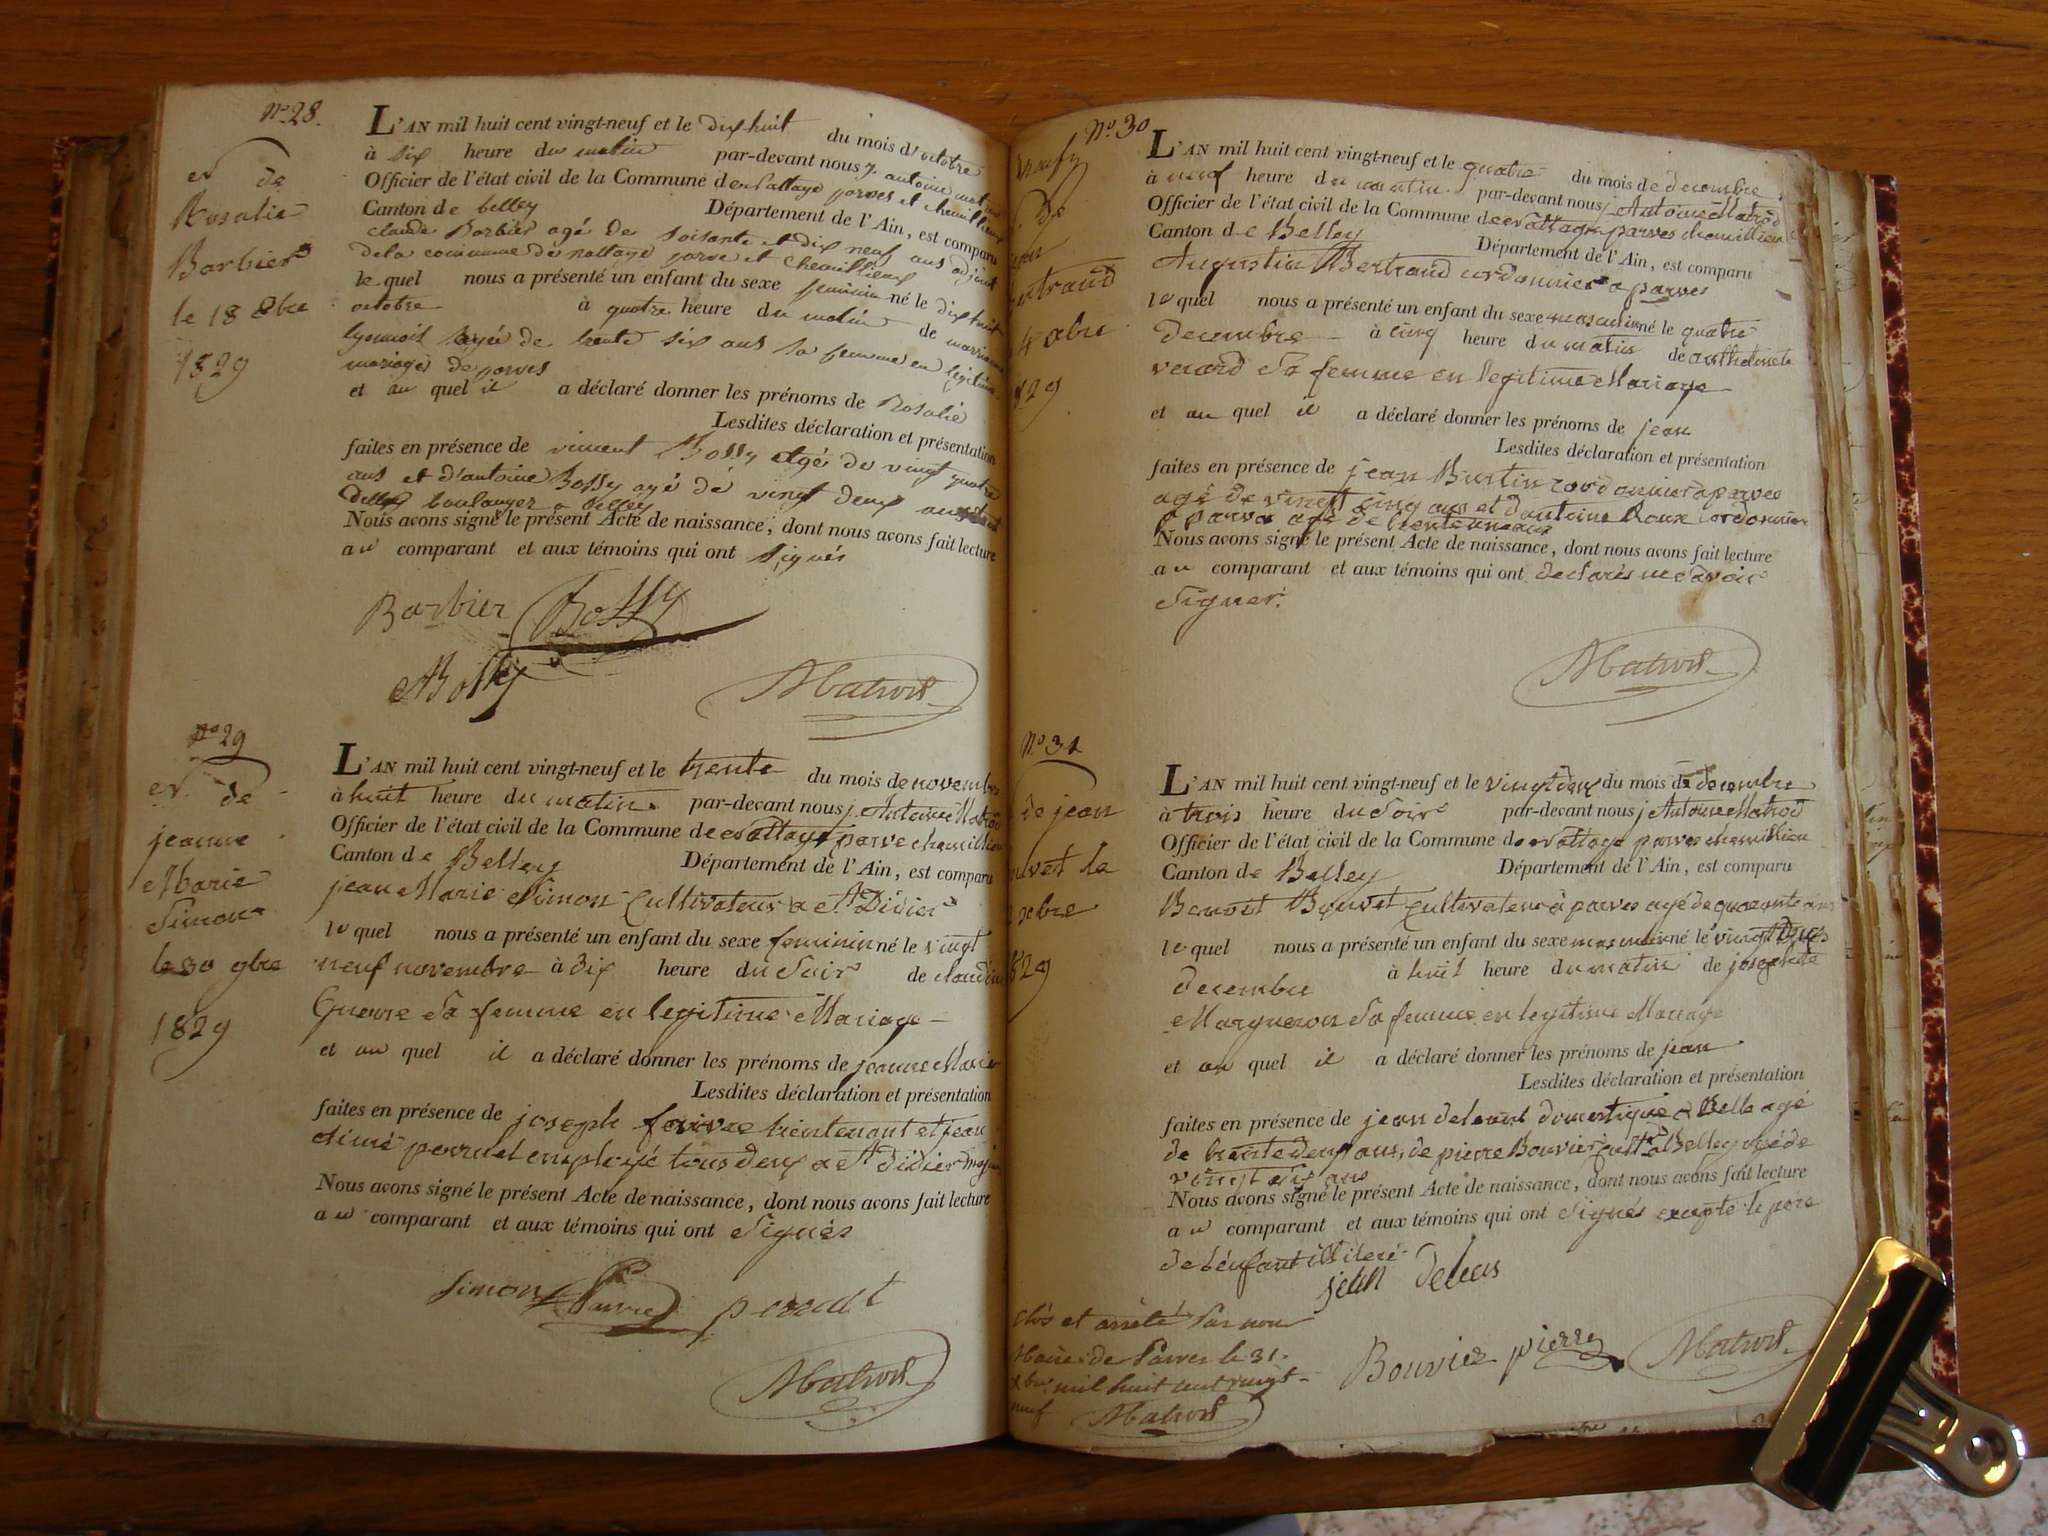 N° 28.
L'AN mil huit cent vingt-neuf et le dix huit du mois d'octobre
à six heure du matin par-devant nous j. antoine
Officier de l'état civil de la Commune de nattage parves et chemillieux
Canton de belley Département de l'Ain, est comparu
claude Barbier agé de soisante et dix neuf ans adjoint
de la commune de nattage parve et chemillieux
le quel nous a présenté un enfant du sexe feminin né le dix huit
octobre à quatre heure du matin de marrianne
lyonnois agée de trente six ans sa femme en legitime
mariage de parves
et au quel il a déclaré donner les prénoms de Rosalie
Lesdites déclaration et présentation
faites en présence de vincent Bossy agé de vingt quatre
ans et d'antoine Bossy agé de vingt deux ans
boulanger a belley
Nous avons signé le présent Acte de naissance, dont nous avons fait lecture
au comparant et aux témoins qui ont signés
Barbier Bossy
ABossy Matrod
er de
Rosalie
Barbier
le 18 8bre
1829
N° 29
L'AN mil huit cent vingt-neuf et le trente du mois de novembre
à huit heure du matin par-devant nous j. Antoine Matrod
Officier de l'état civil de la Commune de nattage parve chemillieu
Canton de Belley Département de l'Ain, est comparu
jean Marie Simon Cultivateur a St Didier
le quel nous a présenté un enfant du sexe feminin né le vingt
neuf novembre à dix heure du soir de claudine
Guerre sa femme en legitime Mariage
et au quel il a déclaré donner les prénoms de jeanne Marie
Lesdites déclaration et présentation
faites en présence de joseph favre lieutenant et jean
aimé perrudet employé tous deux a St didier
Nous avons signé le présent Acte de naissance, dont nous avons fait lecture
au comparant et aux témoins qui ont signés
Simon Favre
Matrod
er de
jeanne
Marie
Simon
le 30 9bre
1829
N° 30
L'AN mil huit cent vingt-neuf et le quatre du mois de decembre
à neuf heure du matin par-devant nous j Antoine Matrod
Officier de l'état civil de la Commune de nattage parves chemillieu
Canton de Belley Département de l'Ain, est comparu
Augustin Bertrand cordonnier a parves
le quel nous a présenté un enfant du sexe masculin né le quatre
decembre à cinq heure du matin de anthelmete
verard sa femme en legitime Mariage
et au quel il a déclaré donner les prénoms de jean
Lesdites déclaration et présentation
faites en présence de jean Burtin cordonnier a parves
agé de vingt cinq ans et d'antoine Roux cordonnier
a parves agé de trente un ans
Nous avons signé le présent Acte de naissance, dont nous avons fait lecture
au comparant et aux témoins qui ont declarés ne savoir
signer.
Matrod
de
ertrand
829
N° 31
L'AN mil huit cent vingt-neuf et le vingt deux du mois de decembre
à trois heure du soir par-devant nous j Antoine Matrod
Officier de l'état civil de la Commune de nattage parves chemillieu
Canton de Belley Département de l'Ain, est comparu
Benoit Bouvet Cultivateur à parves agé de quarente ans
le quel nous a présenté un enfant du sexe masculin né le vingt deux
decembre à huit heure du matin de josephte
Margueron sa femme en legitime Mariage
et au quel il a déclaré donner les prénoms de jean
Lesdites déclaration et présentation
faites en présence de jean domestique a Belle agé
de trente deux ans, de pierre Bouvier a Belley agé de
vingt six ans
Nous avons signé le présent Acte de naissance, dont nous avons fait lecture
au comparant et aux témoins qui ont signés excepté le pere
de l'énfant illiteré
jean
Bouvier pierre Matrod
de jean
uvet le
829
Clos et arrété par nous
Maire de Parves le 31
Xbre mil huit cent vingt
neuf Matrod